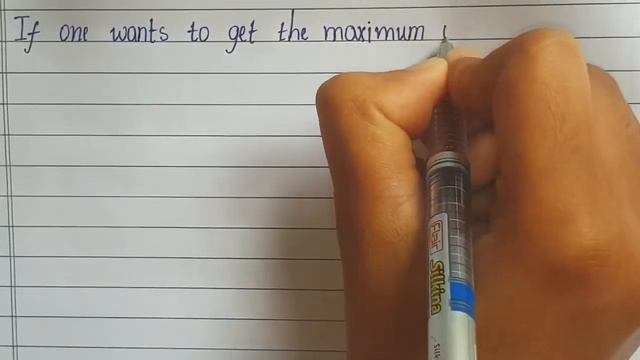 If one wants to get the maximum
Flair
Silkina